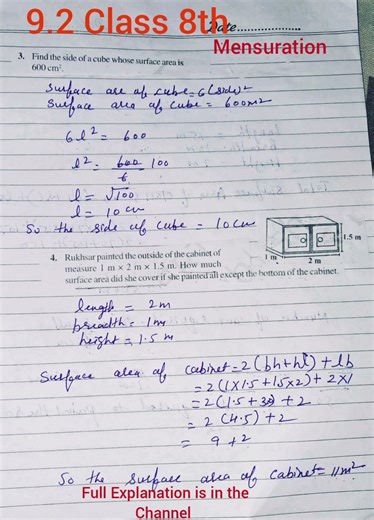 9.2 Class 8th
Date
Mensuration
3. Find the side of a cube whose surface area is
600 cm².
Surface are of cube = 6(side)²
Surface area of cube = 600m²
6l² = 600
l² = 600/6 100
l = √100
l = 10 cm
So the side of cube = 10 cm
4. Rukhsar painted the outside of the cabinet of
measure 1 m × 2 m × 1.5 m. How much
surface area did she cover if she painted all except the bottom of the cabinet.
1.5 m
1 m
2 m
length = 2m
breadth = 1m
height = 1.5 m
Surface area of cabinet = 2(bh+hl)+lb
= 2(1×1.5+1.5×2)+2×1
= 2(1.5+3)+2
= 2(4.5)+2
= 9+2
So the surface area of cabinet = 11m²
Full Explanation is in the
Channel